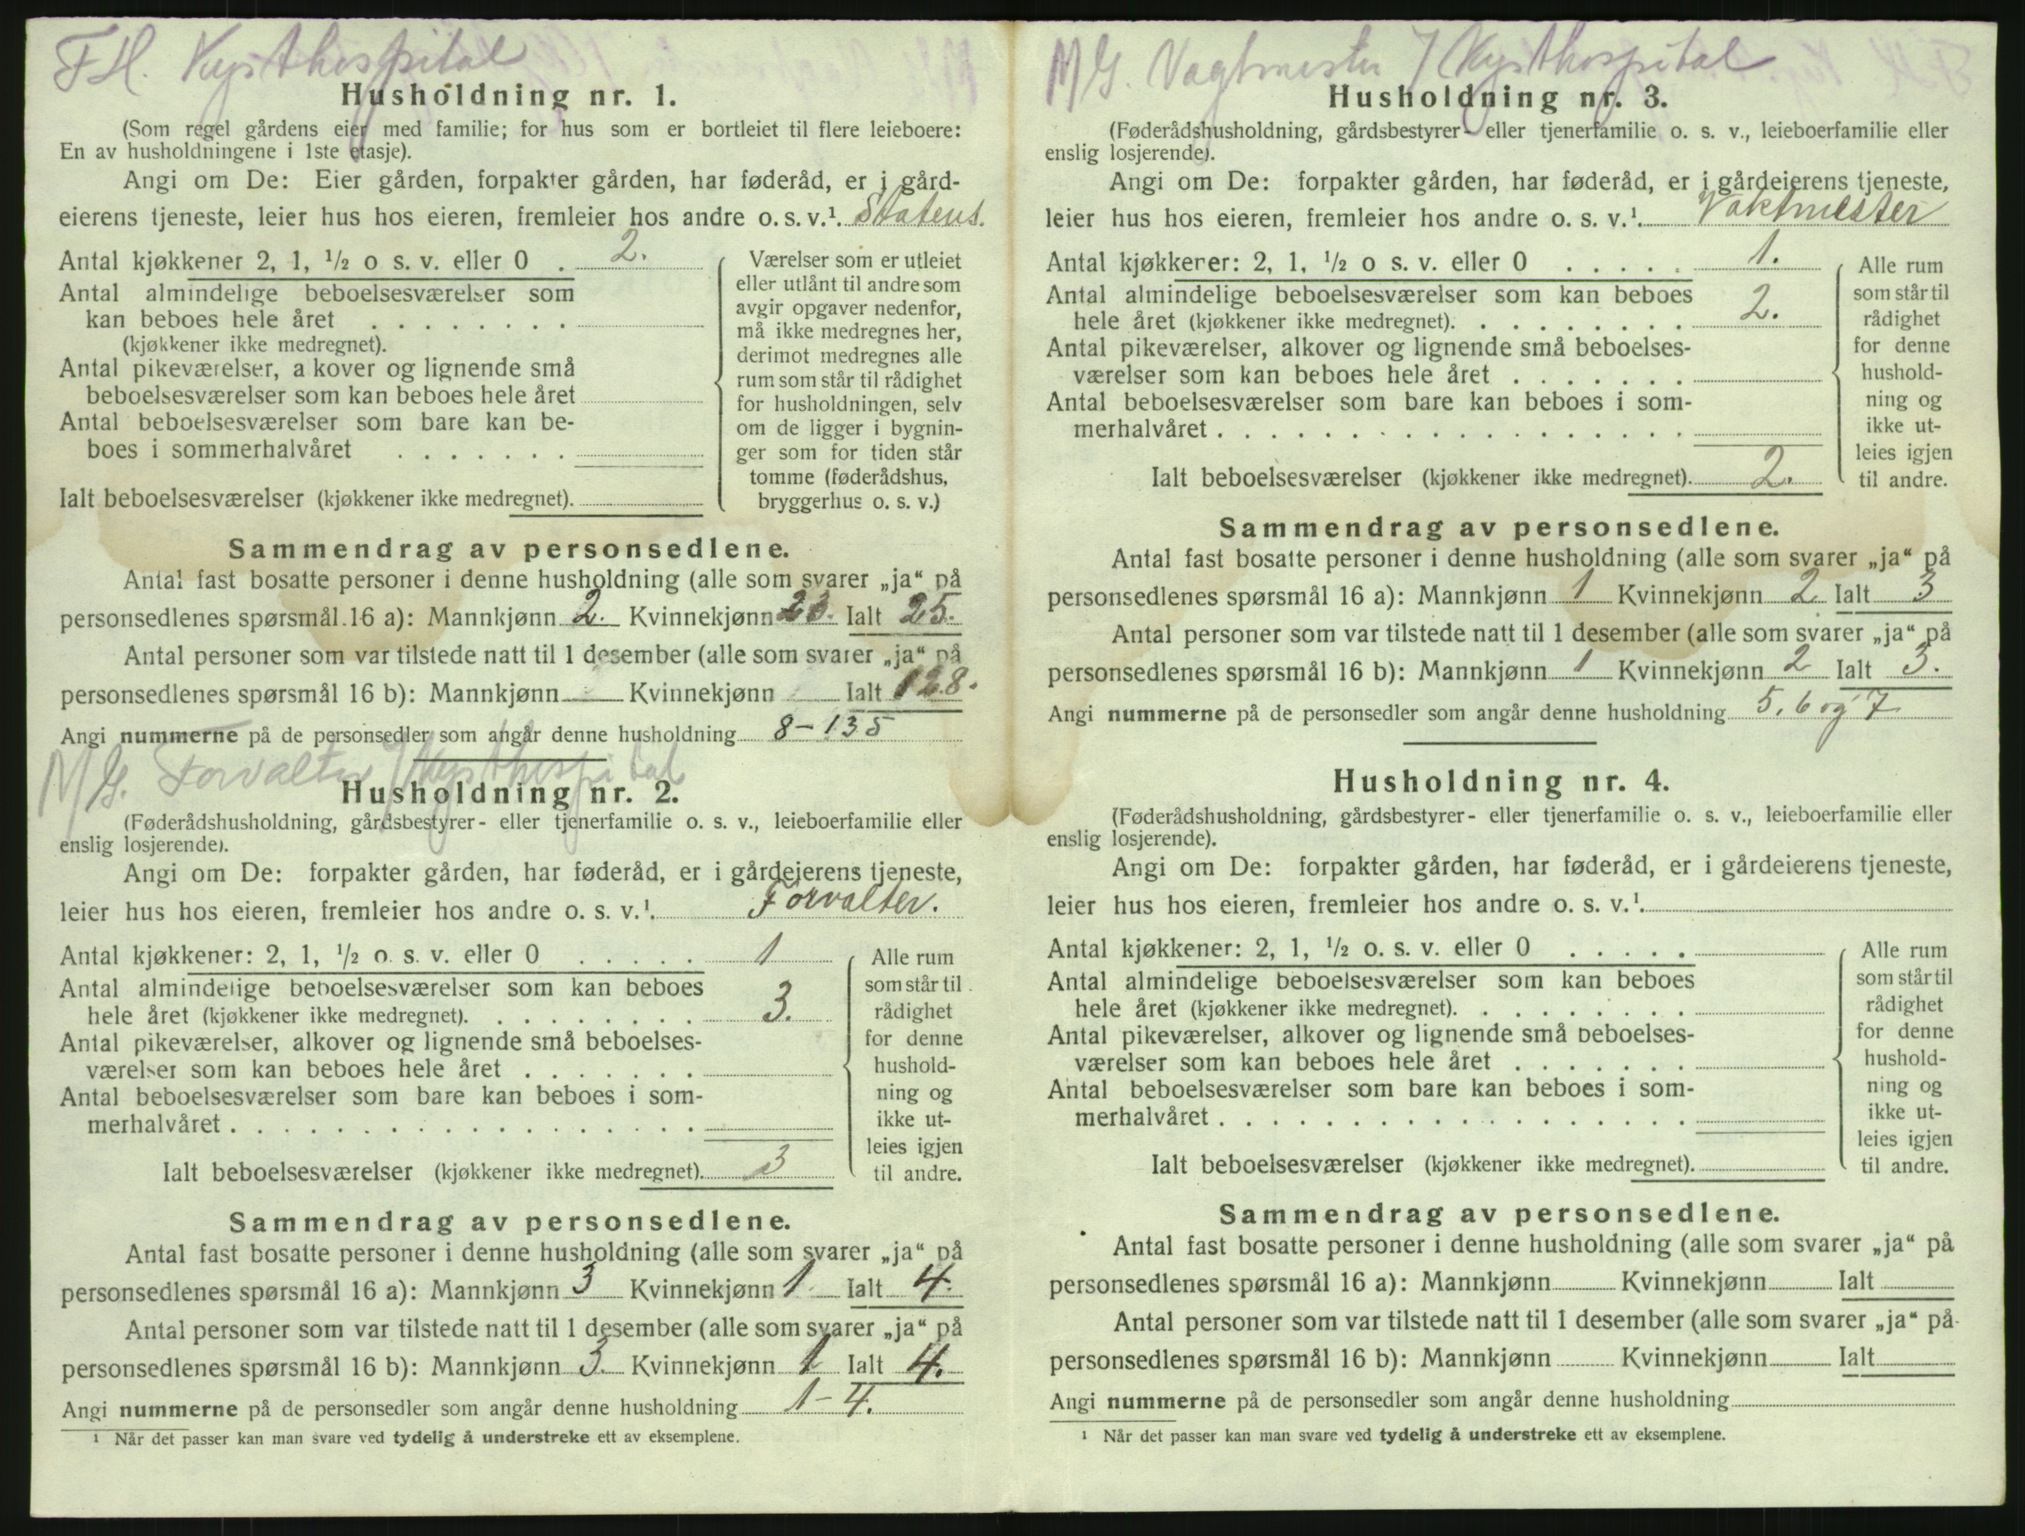 FH. Kysthospital
Husholdning nr. 1.
(Som regel gårdens eier med familie; for hus som er bortleiet til flere leieboere:
En av husholdningene i 1ste etasje).
Angi om De: Eier gården, forpakter gården, har føderåd, er i gård-
eierens tjeneste, leier hus hos eieren, fremleier hos andre o. s. v.¹. Statens.
Antal kjøkkener 2, 1, ½ o s. v. eller 0 . 2.
Antal almindelige beboelsesværelser som
kan beboes hele året . . . . . . .
(kjøkkener ikke medregnet).
Antal pikeværelser, a kover og lignende små
beboelsesværelser som kan beboes hele året
Antal beboelsesværelser som bare kan be-
boes i sommerhalvåret . . . . . . .
Ialt beboelsesværelser (kjøkkener ikke medregnet).
Værelser som er utleiet
eller utlånt til andre som
avgir opgaver nedenfor,
må ikke medregnes her,
derimot medregnes alle
rum som står til rådighet
for husholdningen, selv
om de ligger i bygnin-
ger som for tiden står
tomme (føderådshus,
bryggerhus o. s. v.)
Sammendrag av personsedlene.
Antal fast bosatte personer i denne husholdning (alle som svarer „ja“ på
personsedlenes spørsmål 16 a): Mannkjønn 2. Kvinnekjønn 23. Ialt 25.
Antal personer som var tilstede natt til 1 desember (alle som svarer „ja“ på
personsedlenes spørsmål 16 b): Mannkjønn Kvinnekjønn Ialt 128.
Angi nummerne på de personsedler som angår denne husholdning 8 - 135
M/G. Forvalter / Kysthospital
Husholdning nr. 2.
(Føderådshusholdning, gårdsbestyrer- eller tjenerfamilie o. s. v., leieboerfamilie eller
enslig losjerende).
Angi om De: forpakter gården, har føderåd, er i gårdeierens tjeneste,
leier hus hos eieren, fremleier hos andre o. s. v.¹. Forvalter.
Antal kjøkkener: 2, 1, ½ o. s. v. eller 0 . . . . . 1
Antal almindelige beboelsesværelser som kan beboes
hele året (kjøkkener ikke medregnet). . . . . . . . . 3.
Antal pikeværelser, alkover og lignende små beboelses-
værelser som kan beboes hele året . . . . . . .
Antal beboelsesværelser som bare kan beboes i som-
merhalvåret . . . . . . . . . . . . . . . . . .
Ialt beboelsesværelser (kjøkkener ikke medregnet). 3
Alle rum
som står til
rådighet
for denne
hushold-
ning og
ikke ut-
leies igjen
til andre.
Sammendrag av personsedlene.
Antal fast bosatte personer i denne husholdning (alle som svarer „ja“ på
personsedlenes spørsmål 16 a): Mannkjønn 3 Kvinnekjønn 1 Ialt 4.
Antal personer som var tilstede natt til 1 desember (alle som svarer „ja“ på
personsedlenes spørsmål 16 b): Mannkjønn 3. Kvinnekjønn 1 Ialt 4.
Angi nummerne på de personsedler som angår denne husholdning 1 - 4.
¹ Når det passer kan man svare ved tydelig å understreke ett av eksemplene.
M/G. Vagtmester / Kysthospital
Husholdning nr. 3.
(Føderådshusholdning, gårdsbestyrer- eller tjenerfamilie o. s. v., leieboerfamilie eller
enslig losjerende).
Angi om De: forpakter gården, har føderåd, er i gårdeierens tjeneste,
leier hus hos eieren, fremleier hos andre o. s. v.¹. Vaktmester
Antal kjøkkener: 2, 1, ½ o s. v. eller 0 . . . . . 1.
Antal almindelige beboelsesværelser som kan beboes
hele året (kjøkkener ikke medregnet). . . . . . . . . 2.
Antal pikeværelser, alkover og lignende små beboelses-
værelser som kan beboes hele året . . . . . . .
Antal beboelsesværelser som bare kan beboes i som-
merhalvåret . . . . . . . . . . . . . . . . . .
Ialt beboelsesværelser (kjøkkener ikke medregnet). 2.
Alle rum
som står til
rådighet
for denne
hushold-
ning og
ikke ut-
leies igjen
til andre.
Sammendrag av personsedlene.
Antal fast bosatte personer i denne husholdning (alle som svarer „ja“ på
personsedlenes spørsmål 16 a): Mannkjønn 1 Kvinnekjønn 2 Ialt 3
Antal personer som var tilstede natt til 1 desember (alle som svarer „ja“ på
personsedlenes spørsmål 16 b): Mannkjønn 1 Kvinnekjønn 2 Ialt 3.
Angi nummerne på de personsedler som angår denne husholdning 5, 6 og 7
Husholdning nr. 4.
(Føderådshusholdning, gårdsbestyrer- eller tjenerfamilie o. s. v., leieboerfamilie eller
enslig losjerende).
Angi om De: forpakter gården, har føderåd, er i gårdeierens tjeneste,
leier hus hos eieren, fremleier hos andre o. s. v.¹.
Antal kjøkkener: 2, 1, ½ o. s. v. eller 0 . . . . .
Antal almindelige beboelsesværelser som kan beboes
hele året (kjøkkener ikke medregnet). . . . . . . . .
Antal pikeværelser, alkover og lignende små beboelses-
værelser som kan beboes hele året . . . . . . .
Antal beboelsesværelser som bare kan beboes i som-
merhalvåret . . . . . . . . . . . . . . . . . .
Ialt beboelsesværelser (kjøkkener ikke medregnet).
Alle rum
som står til
rådighet
for denne
hushold-
ning og
ikke ut-
leies igjen
til andre.
Sammendrag av personsedlene.
Antal fast bosatte personer i denne husholdning (alle som svarer „ja“ på
personsedlenes spørsmål 16 a): Mannkjønn Kvinnekjønn Ialt
Antal personer som var tilstede natt til 1 desember (alle som svarer „ja“ på
personsedlenes spørsmål 16 b): Mannkjønn Kvinnekjønn Ialt
Angi nummerne på de personsedler som angår denne husholdning
¹ Når det passer kan man svare ved tydelig å understreke ett av eksemplene.